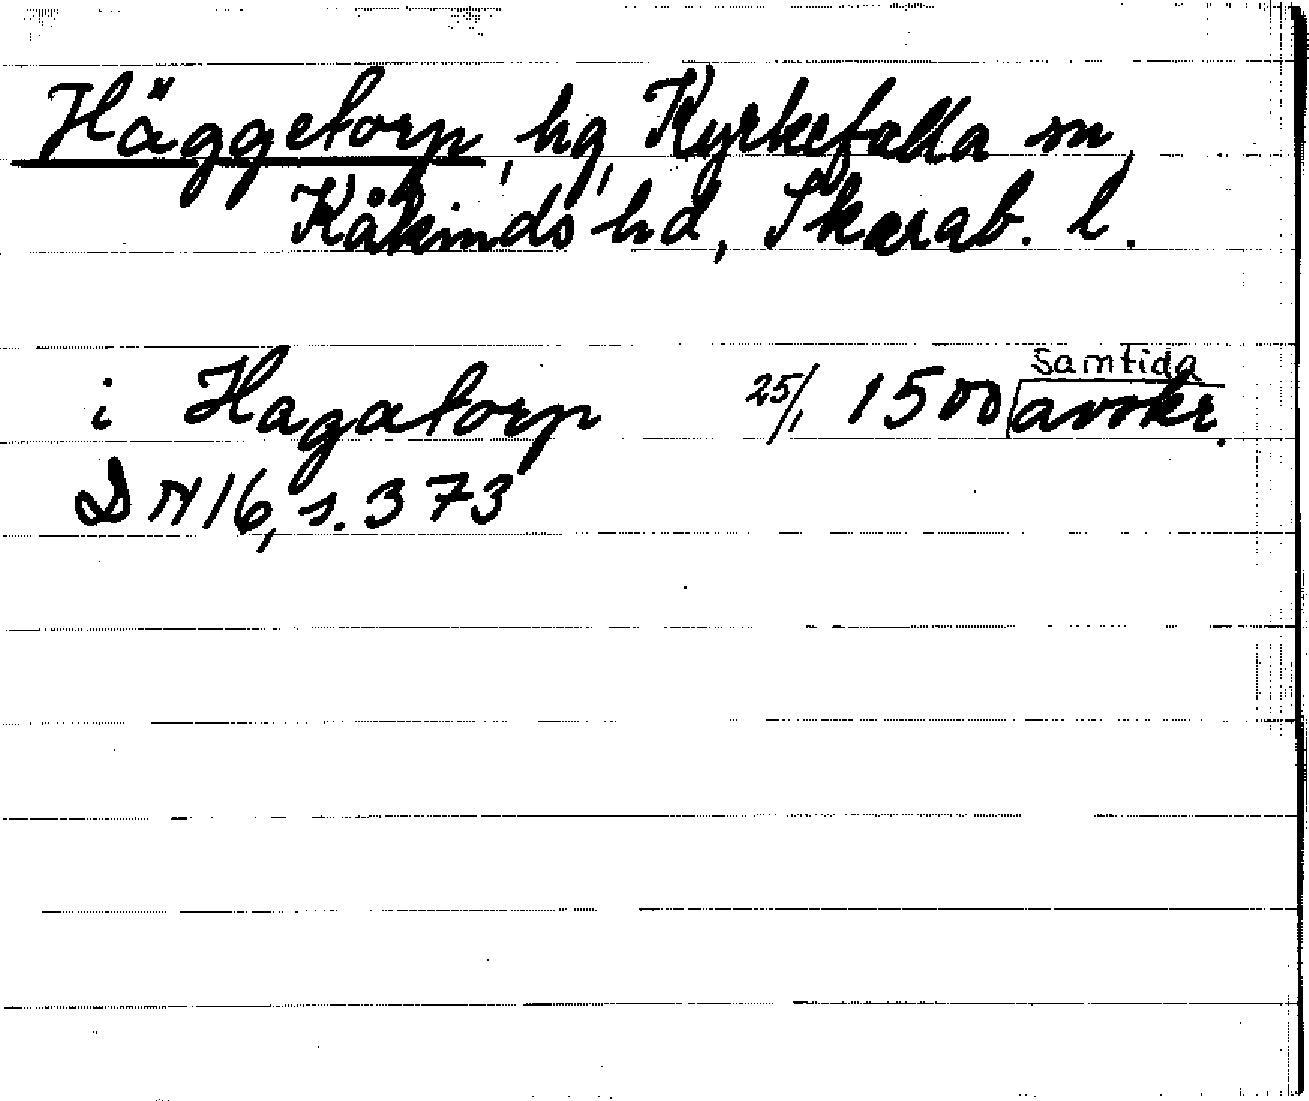 Häggetorp, hg, Kyrkefalla sn,
Kåkinds hd, Skarab. l.
samtida
i Hagatorp 25/1 1500 avskr.
DN 16, s. 373